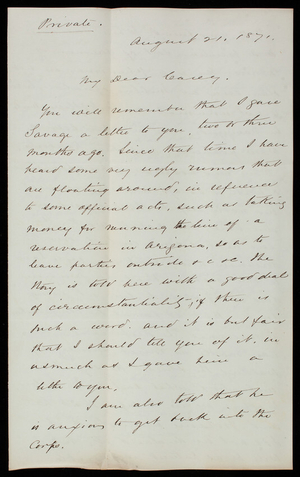 Private.
August 21, 1871.
My Dear Casey,
You will remember that I gave
Savage a letter to you, two to three
months ago. Since that time I have
heard some very ugly rumors that
are floating around, in reference
to some official acts, such as taking
money for running the line of a
reservation in Arizona, so as to
leave parties outside &c &c. The
story is told here with a good deal
of circumstantiality, if there is
such a word. and it is but fair
that I should tell you of it, in
asmuch as I gave him a
letter to you.
I am also told that he
is anxious to get back into the
Corps.